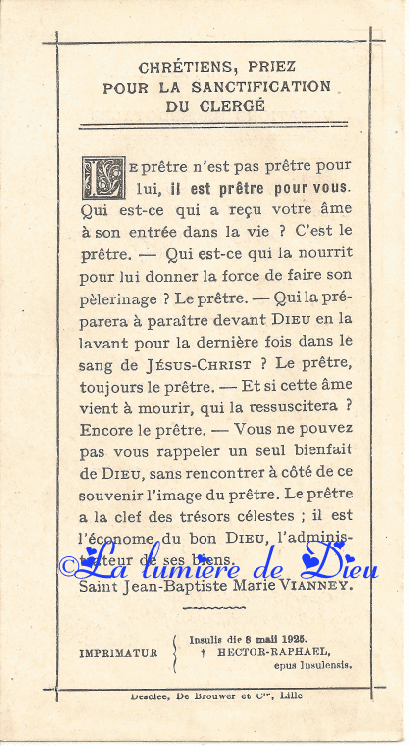 CHRÉTIENS, PRIEZ
POUR LA SANCTIFICATION
DU CLERGÉ
LE prêtre n'est pas prêtre pour
lui, il est prêtre pour vous.
Qui est-ce qui a reçu votre âme
à son entrée dans la vie ? C'est le
prêtre. — Qui est-ce qui la nourrit
pour lui donner la force de faire son
pèlerinage ? Le prêtre. — Qui la pré-
parera à paraître devant DIEU en la
lavant pour la dernière fois dans le
sang de JÉSUS-CHRIST ? Le prêtre,
toujours le prêtre. — Et si cette âme
vient à mourir, qui la ressuscitera ?
Encore le prêtre. — Vous ne pouvez
pas vous rappeler un seul bienfait
de DIEU, sans rencontrer à côté de ce
souvenir l'image du prêtre. Le prêtre
a la clef des trésors célestes ; il est
l'économe du bon DIEU, l'adminis-
trateur de ses biens.
©La lumière de Dieu
Saint Jean-Baptiste Marie VIANNEY.
IMPRIMATUR
Insulis die 8 maii 1925.
† HECTOR-RAPHAEL,
epus Insulensis.
Desclée, De Brouwer et Cie, Lille